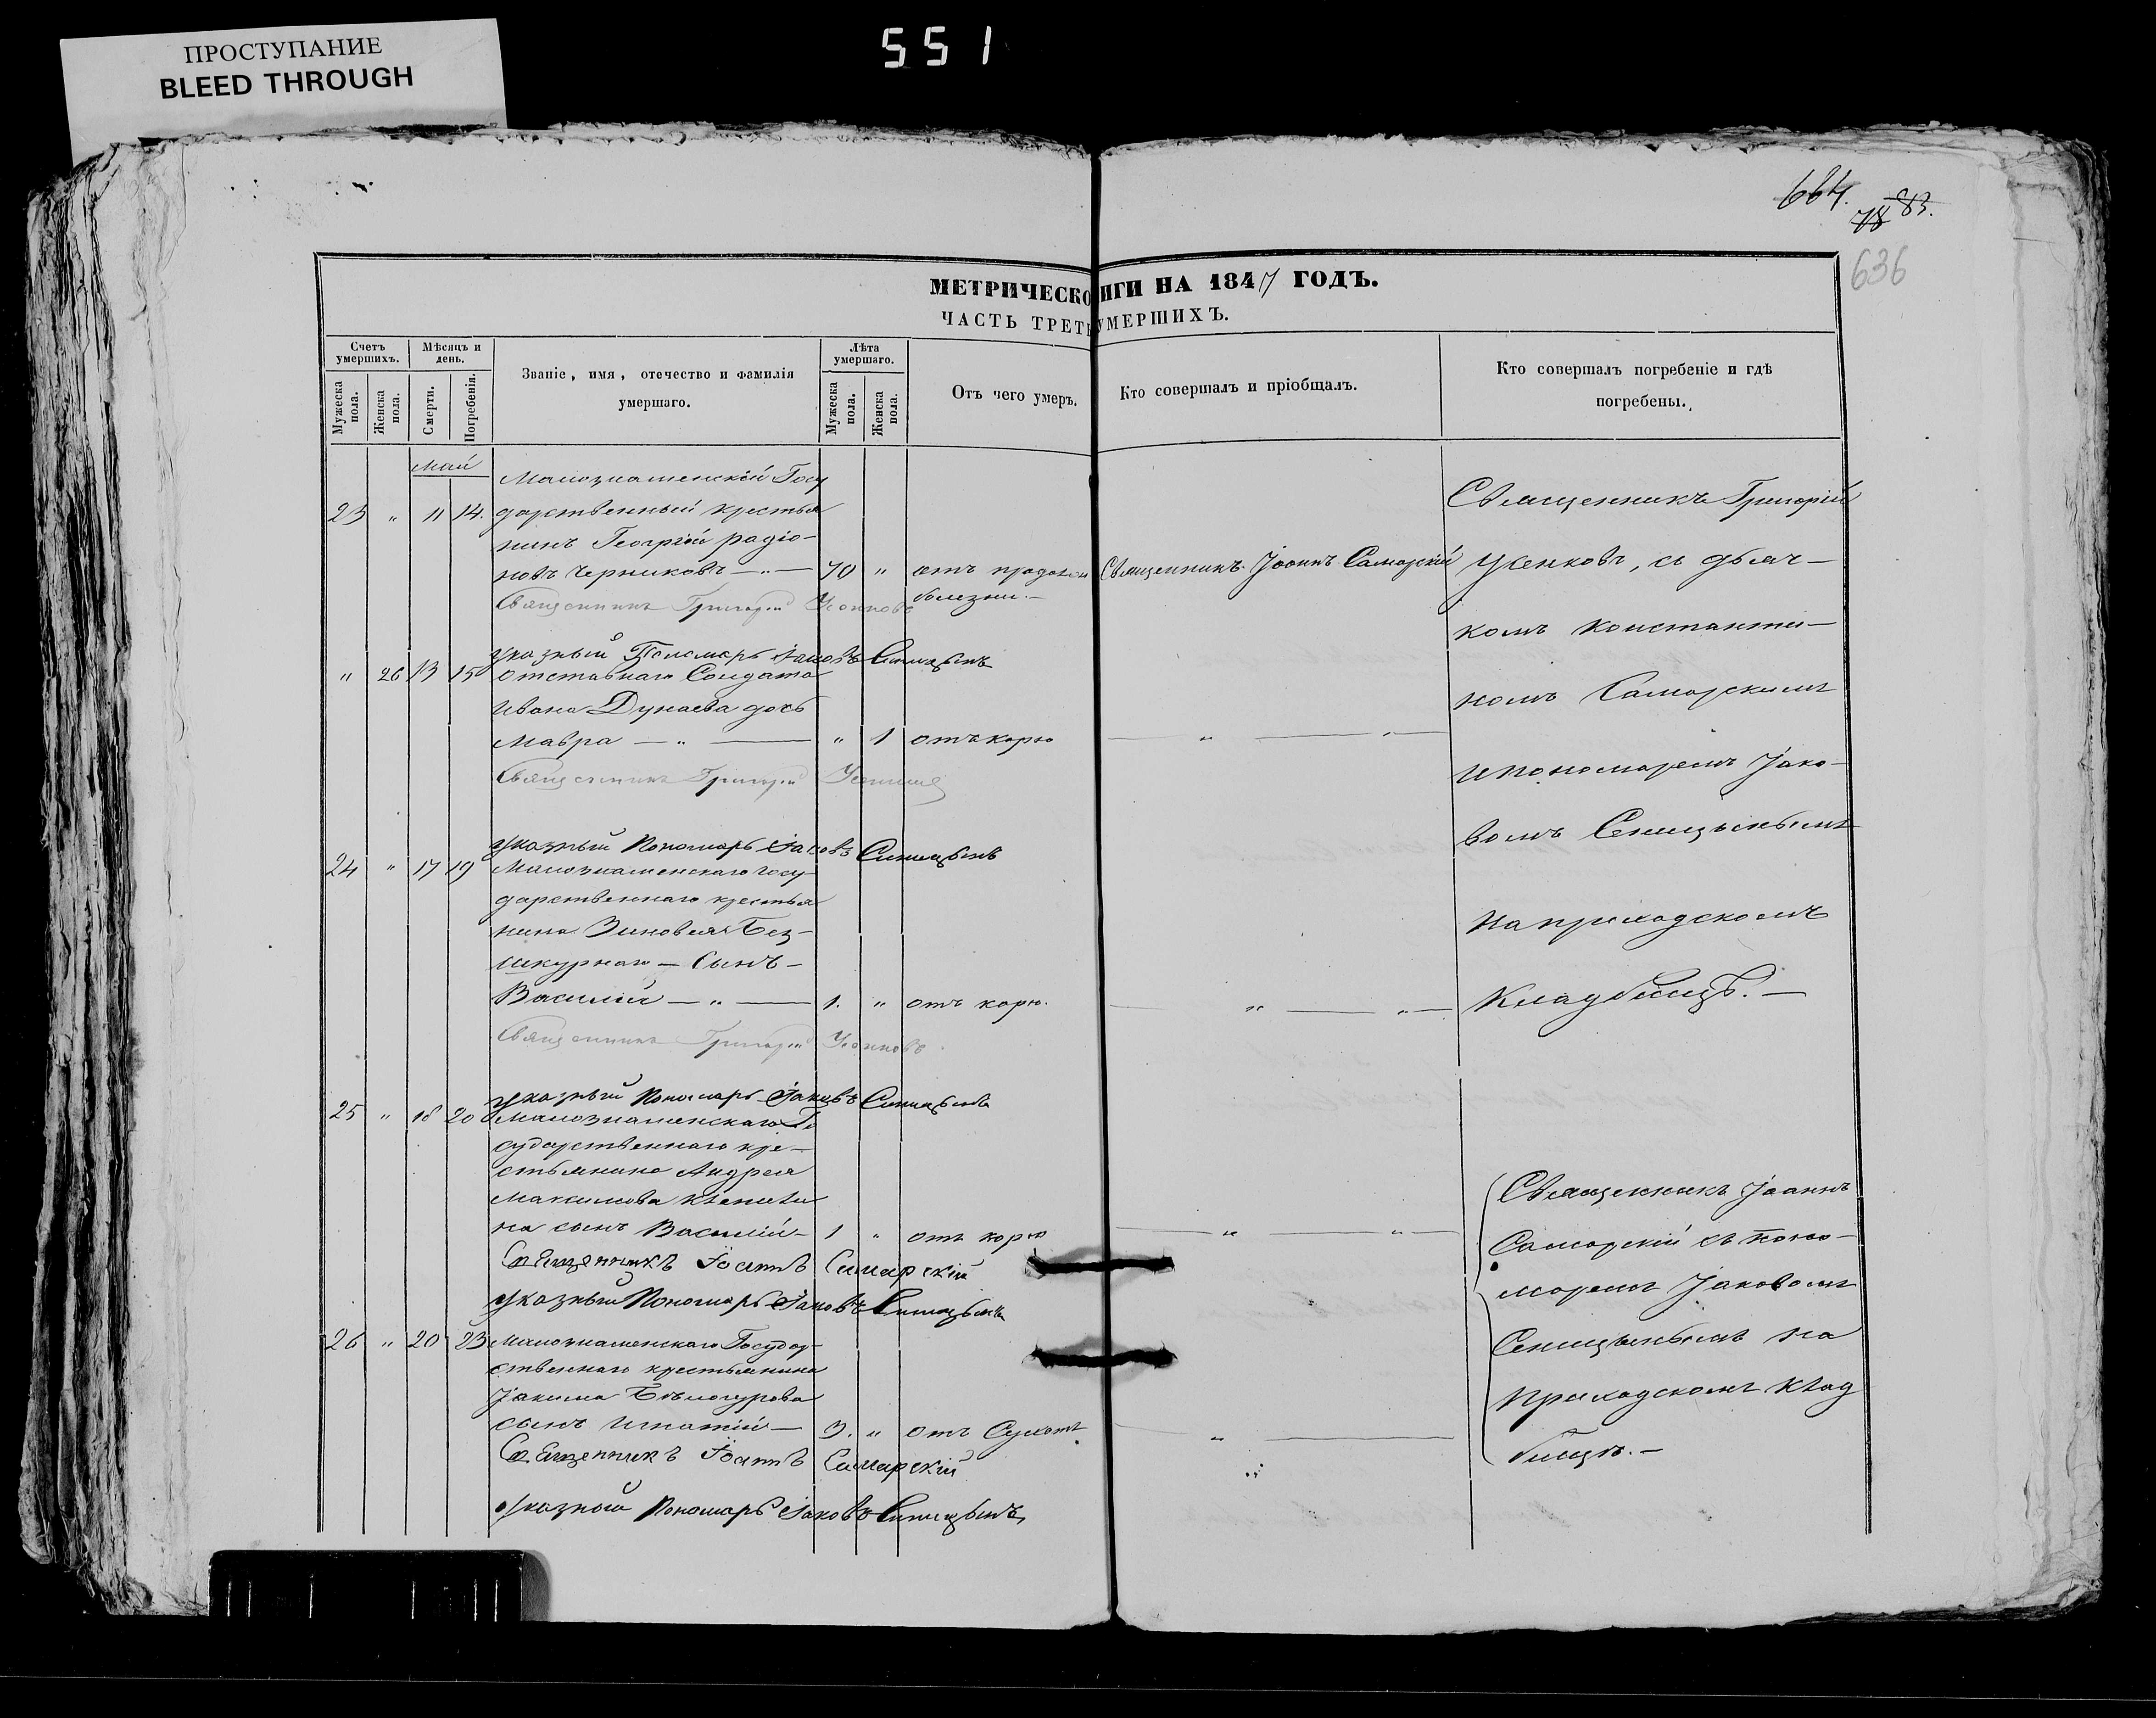 ПРОСТУПАНИЕ
BLEED THROUGH
551
664.
78 83.
636
МЕТРИЧЕСКО ИГИ НА 1847 ГОДЪ.
ЧАСТЬ ТРЕТЬ УМЕРШИХЪ.
Счетъ умершихъ.
Мужеска пола.
Женска пола.
Мѣсяцъ и день.
Смерти.
Погребенія.
Званіе, имя, отечество и фамилія
умершаго.
Лѣта умершаго.
Мужеска пола.
Женска пола.
Отъ чего умеръ.
Кто совершалъ и пріобщалъ.
Кто совершалъ погребеніе и гдѣ
погребены.
Май
Малознаменскій Госу
23 " 11 14. дарственный крестья
нинъ Георгій радіо-
новъ Черниковъ — " — 70 " отъ Священникъ Іоаннъ Самарскій
болезни. —
Священникъ Григорій Усенковъ
указный Пономарь Іаковъ Синицынъ
" 26 13 15 отставнаго Солдата
Ивана Дунаева дочь
Мавра — " — " 1 отъ корю — " — " —
Священникъ Григорій
указный Пономарь Іаковъ Синицынъ
24 " 17 19 Малознаменскаго госу-
дарственнаго крестья
нина Зиновея Без-
шкурнаго — Сынъ —
Василій — " — 1. " отъ корю. — " — " —
Священникъ Григорій Усенковъ
указный Пономарь Іаковъ Синицынъ
25 " 18 20 Малознаменскаго Го
сударственнаго кре-
стьянина Андрея
Максимова
на сынъ Василій — 1 " отъ корю — " — " —
Священникъ Іоаннъ Самарскій
указный Пономарь Іаковъ Синицынъ
26 " 20 23 Малознаменскаго Государ-
ственнаго крестьянина
Іакима Бѣлогурова
сынъ Игнатій — 3. " отъ Сухотъ — " —
Священникъ Іоаннъ Самарскій
указный Пономарь Іаковъ Синицынъ
Священникъ Григорій
Усенковъ, съ дьяч-
комъ Константи-
номъ Самарскимъ
и пономаремъ Іако-
вомъ Сеницынымъ
на приходскомъ
Кладбищѣ. —
Священникъ Іоаннъ
Самарскій съ поно-
маремъ Іаковомъ
Сеницынымъ на
приходскомъ клад
бищѣ. —